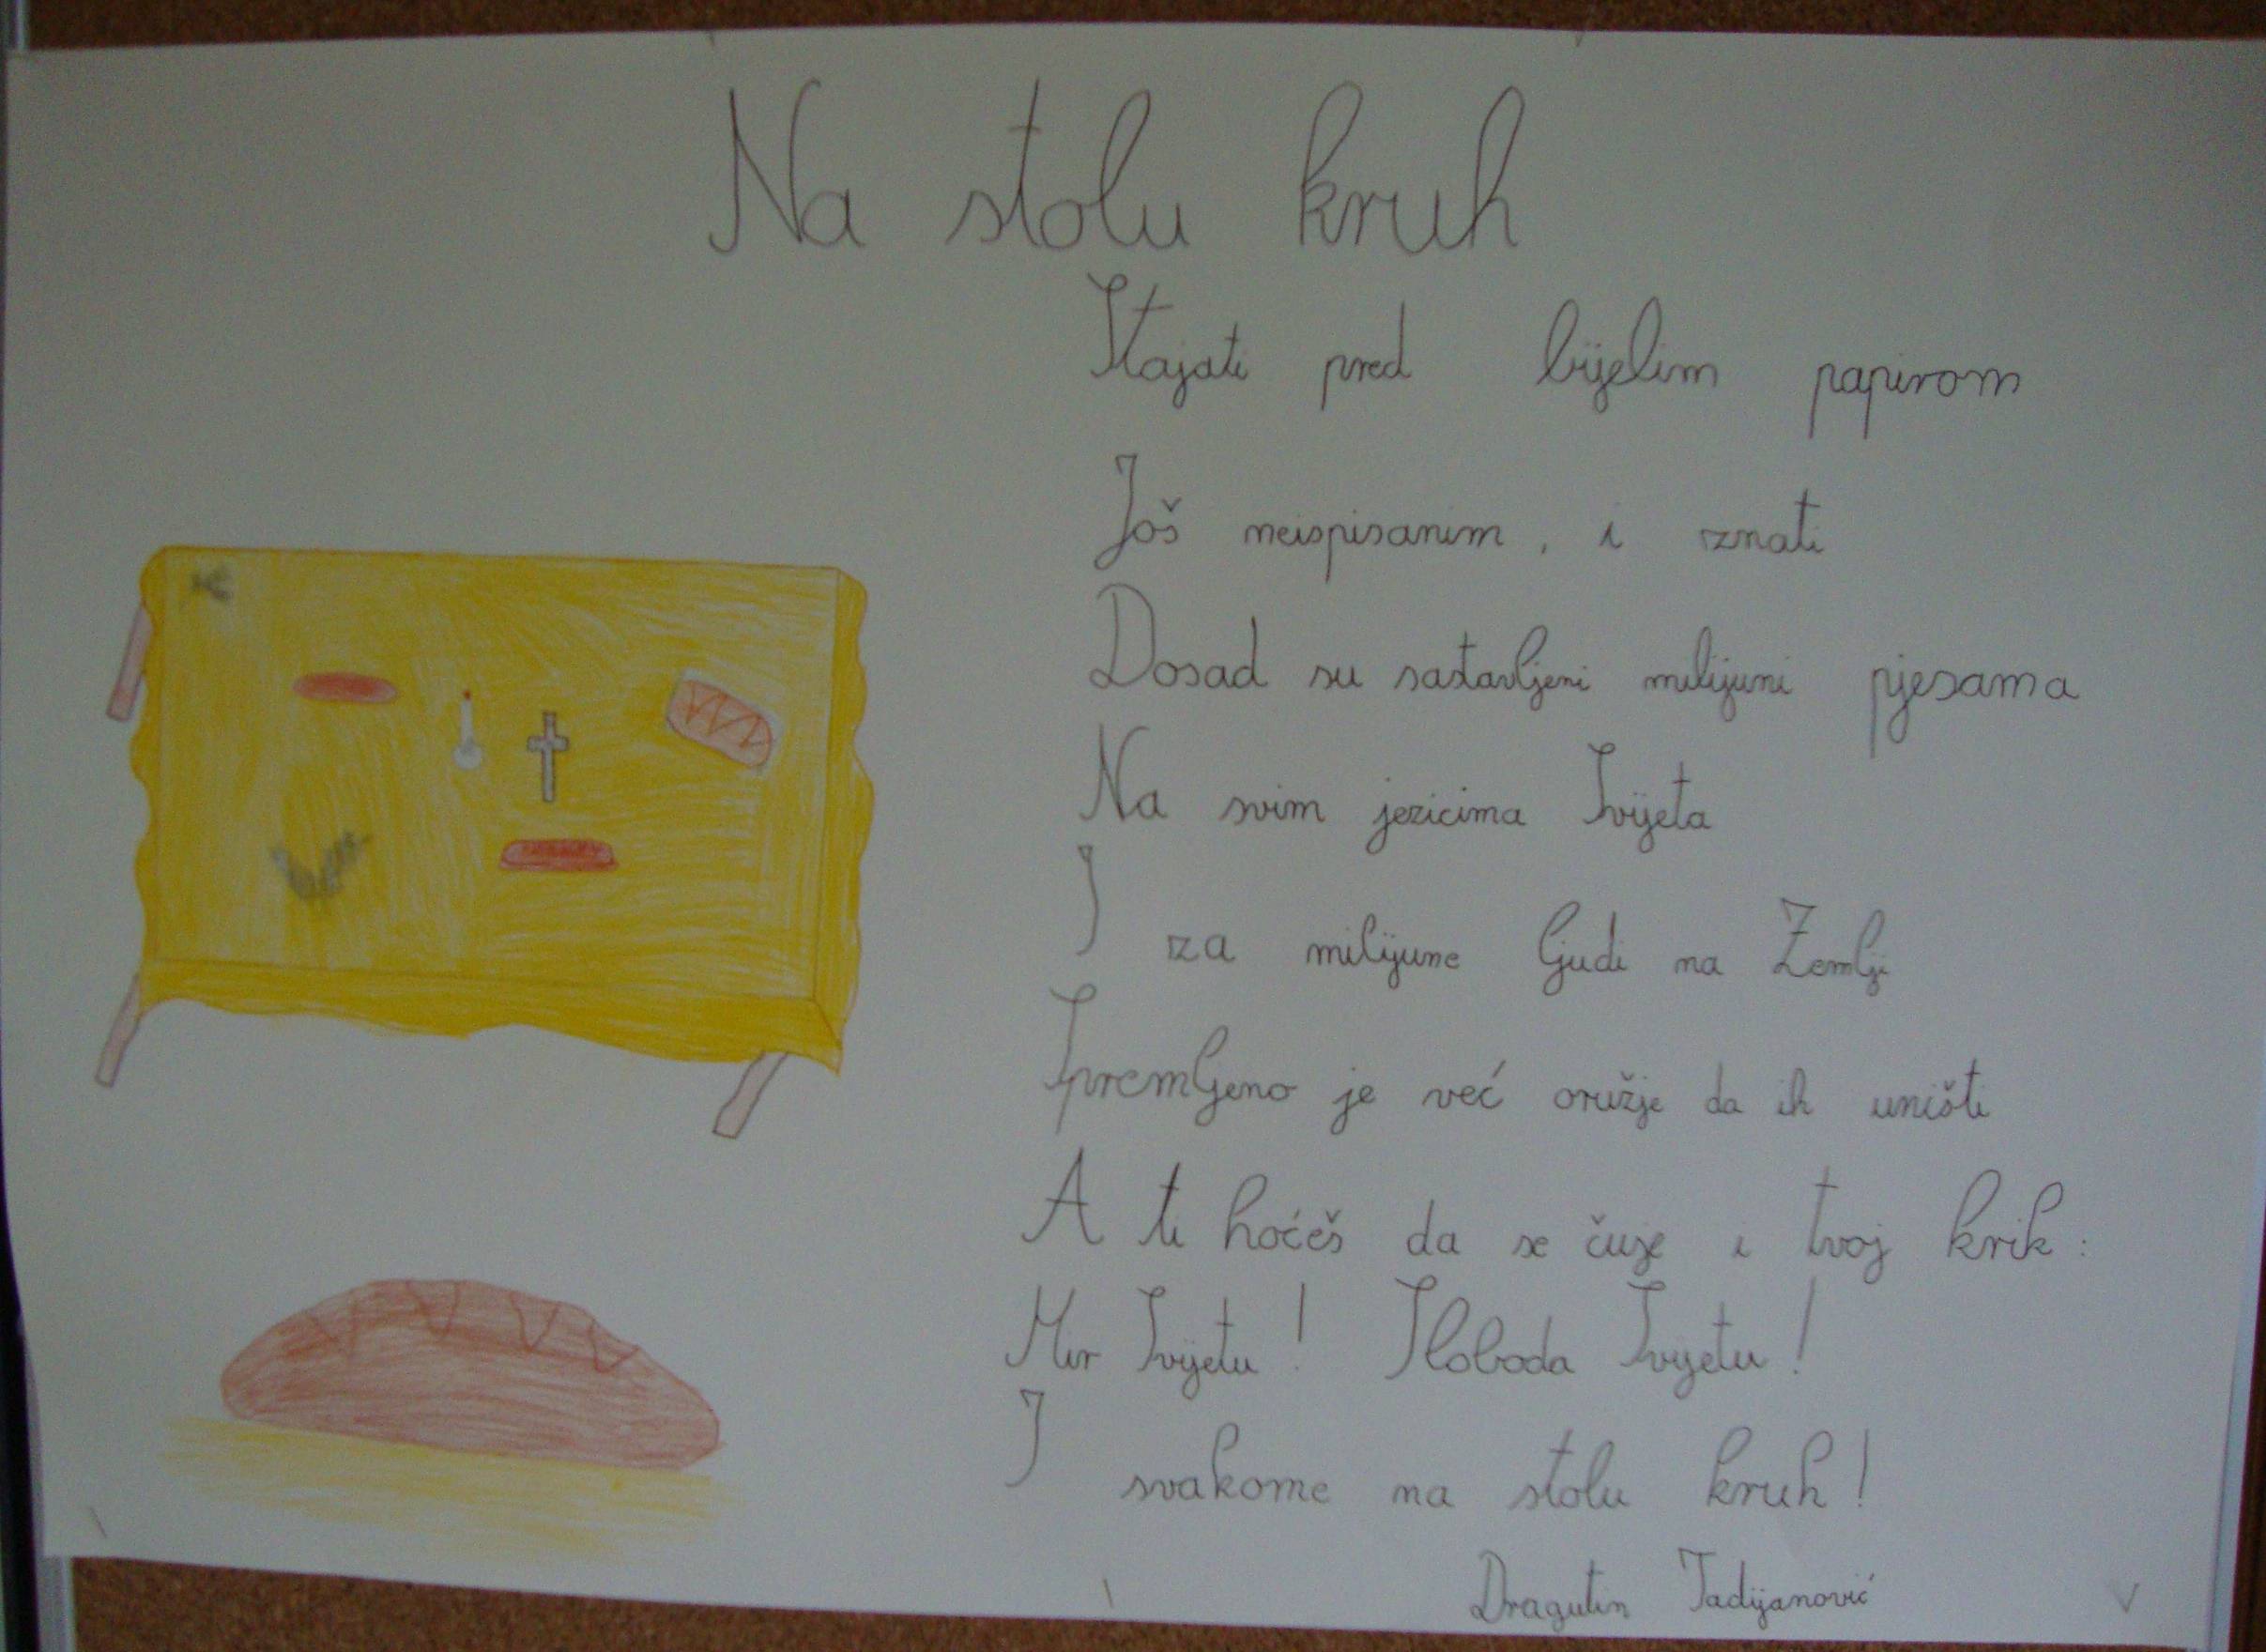 Na stolu kruh
Stajati pred bijelim papirom
Još neispisanim, i znati
Dosad su sastavljeni milijuni pjesama
Na svim jezicima Svijeta
I za milijune ljudi na Zemlji
Spremljeno je već oružje da ih uništi
A ti hoćeš da se čuje i tvoj krik:
Mir Svijetu! Sloboda Svijetu!
I svakome na stolu kruh!
Dragutin Tadijanović